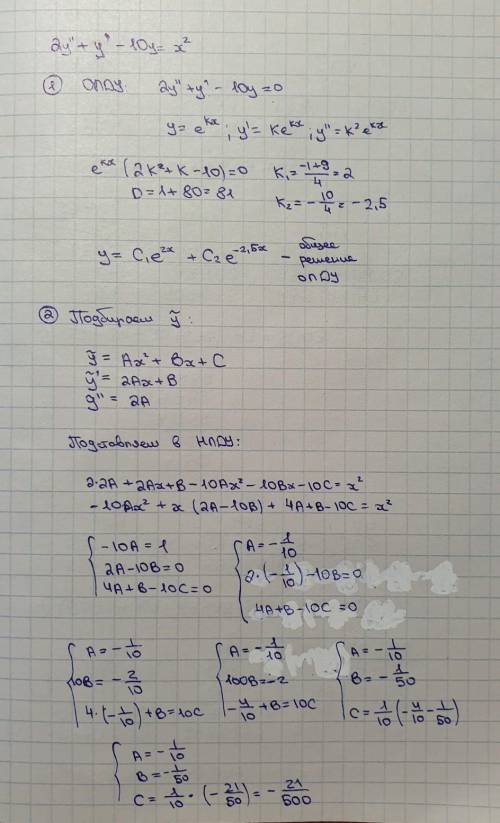 2y" + y' - 10y = x²
① ОПДУ: 2y" + y' - 10y = 0
y = e^{kx}; y' = ke^{kx}; y" = k²e^{kx}
e^{kx}(2k² + k - 10) = 0 k₁ = (-1+9)/4 = 2
D = 1 + 80 = 81 k₂ = -10/4 = -2,5
y = C₁e^{2x} + C₂e^{-2,5x} - общее
решение
ОПДУ
② Подбираем ỹ:
ỹ = Ax² + Bx + C
ỹ' = 2Ax + B
ỹ" = 2A
Подставляем в НПДУ:
2·2A + 2Ax + B - 10Ax² - 10Bx - 10C = x²
-10Ax² + x(2A - 10B) + 4A + B - 10C = x²
{ -10A = 1 { A = -1/10
2A - 10B = 0 2·(-1/10) - 10B = 0
4A + B - 10C = 0 4A + B - 10C = 0
{ A = -1/10 { A = -1/10 { A = -1/10
10B = -2/10 100B = -2 B = -1/50
4·(-1/10) + B = 10C -4/10 + B = 10C C = 1/10(-4/10 - 1/50)
{ A = -1/10
B = -1/50
C = 1/10 · (-21/50) = -21/500